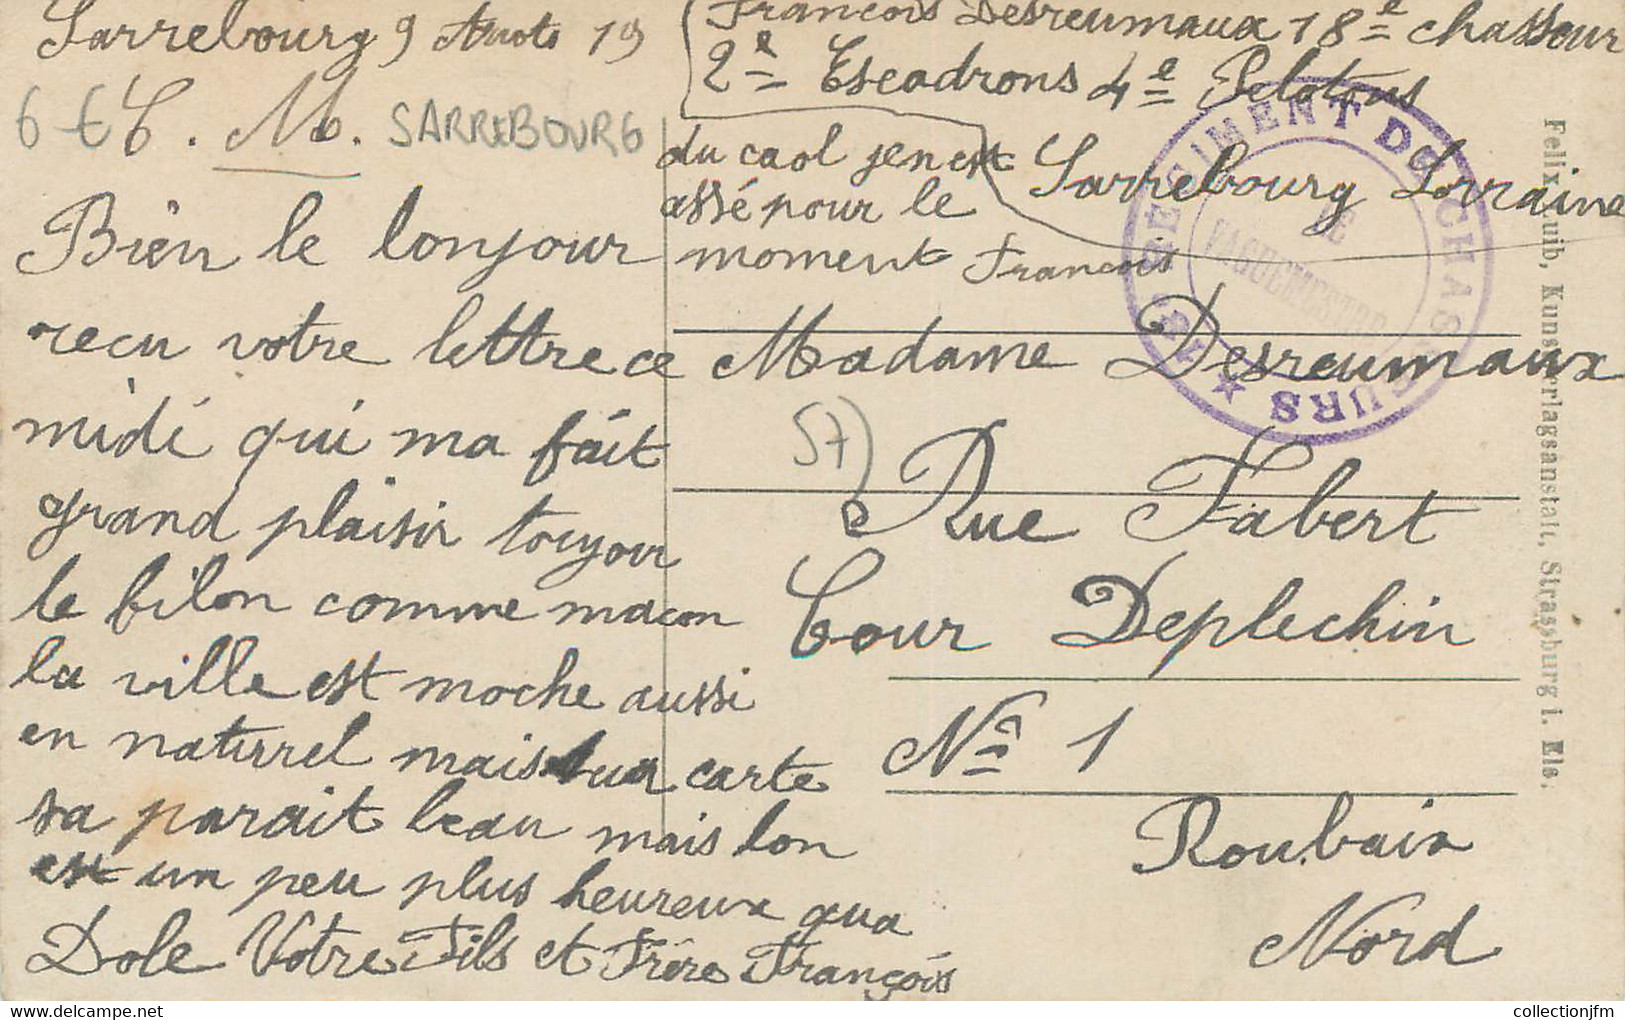 Sarrebourg 9 Auots 19
6 € C. M. SARREBOURG
Bien le bonjour
recu votre lettre ce
midi qui ma fáit
grand plaisir toujour
le filon comme macon
la ville est moche aussi
en naturrel mais sur carte
sa parait beau mais lon
est un peu plus heureux qua
Dole Votre Fils et Frère François
Francois Desreumaux 18e chasseur
2e Escadrons 4e Pelotons
Sarrebourg Lorraine
du caol jen est
assé pour le
moment Francois
18e REGIMENT DE CHASSEURS
LE
VAGUEMESTRE
Madame Desreumaux
57)
Rue Fabert
Cour Deplechin
No 1
Roubaix
Nord
Felix Luib, Kunstverlagsanstalt, Strassburg i. Els.
collectionjfm